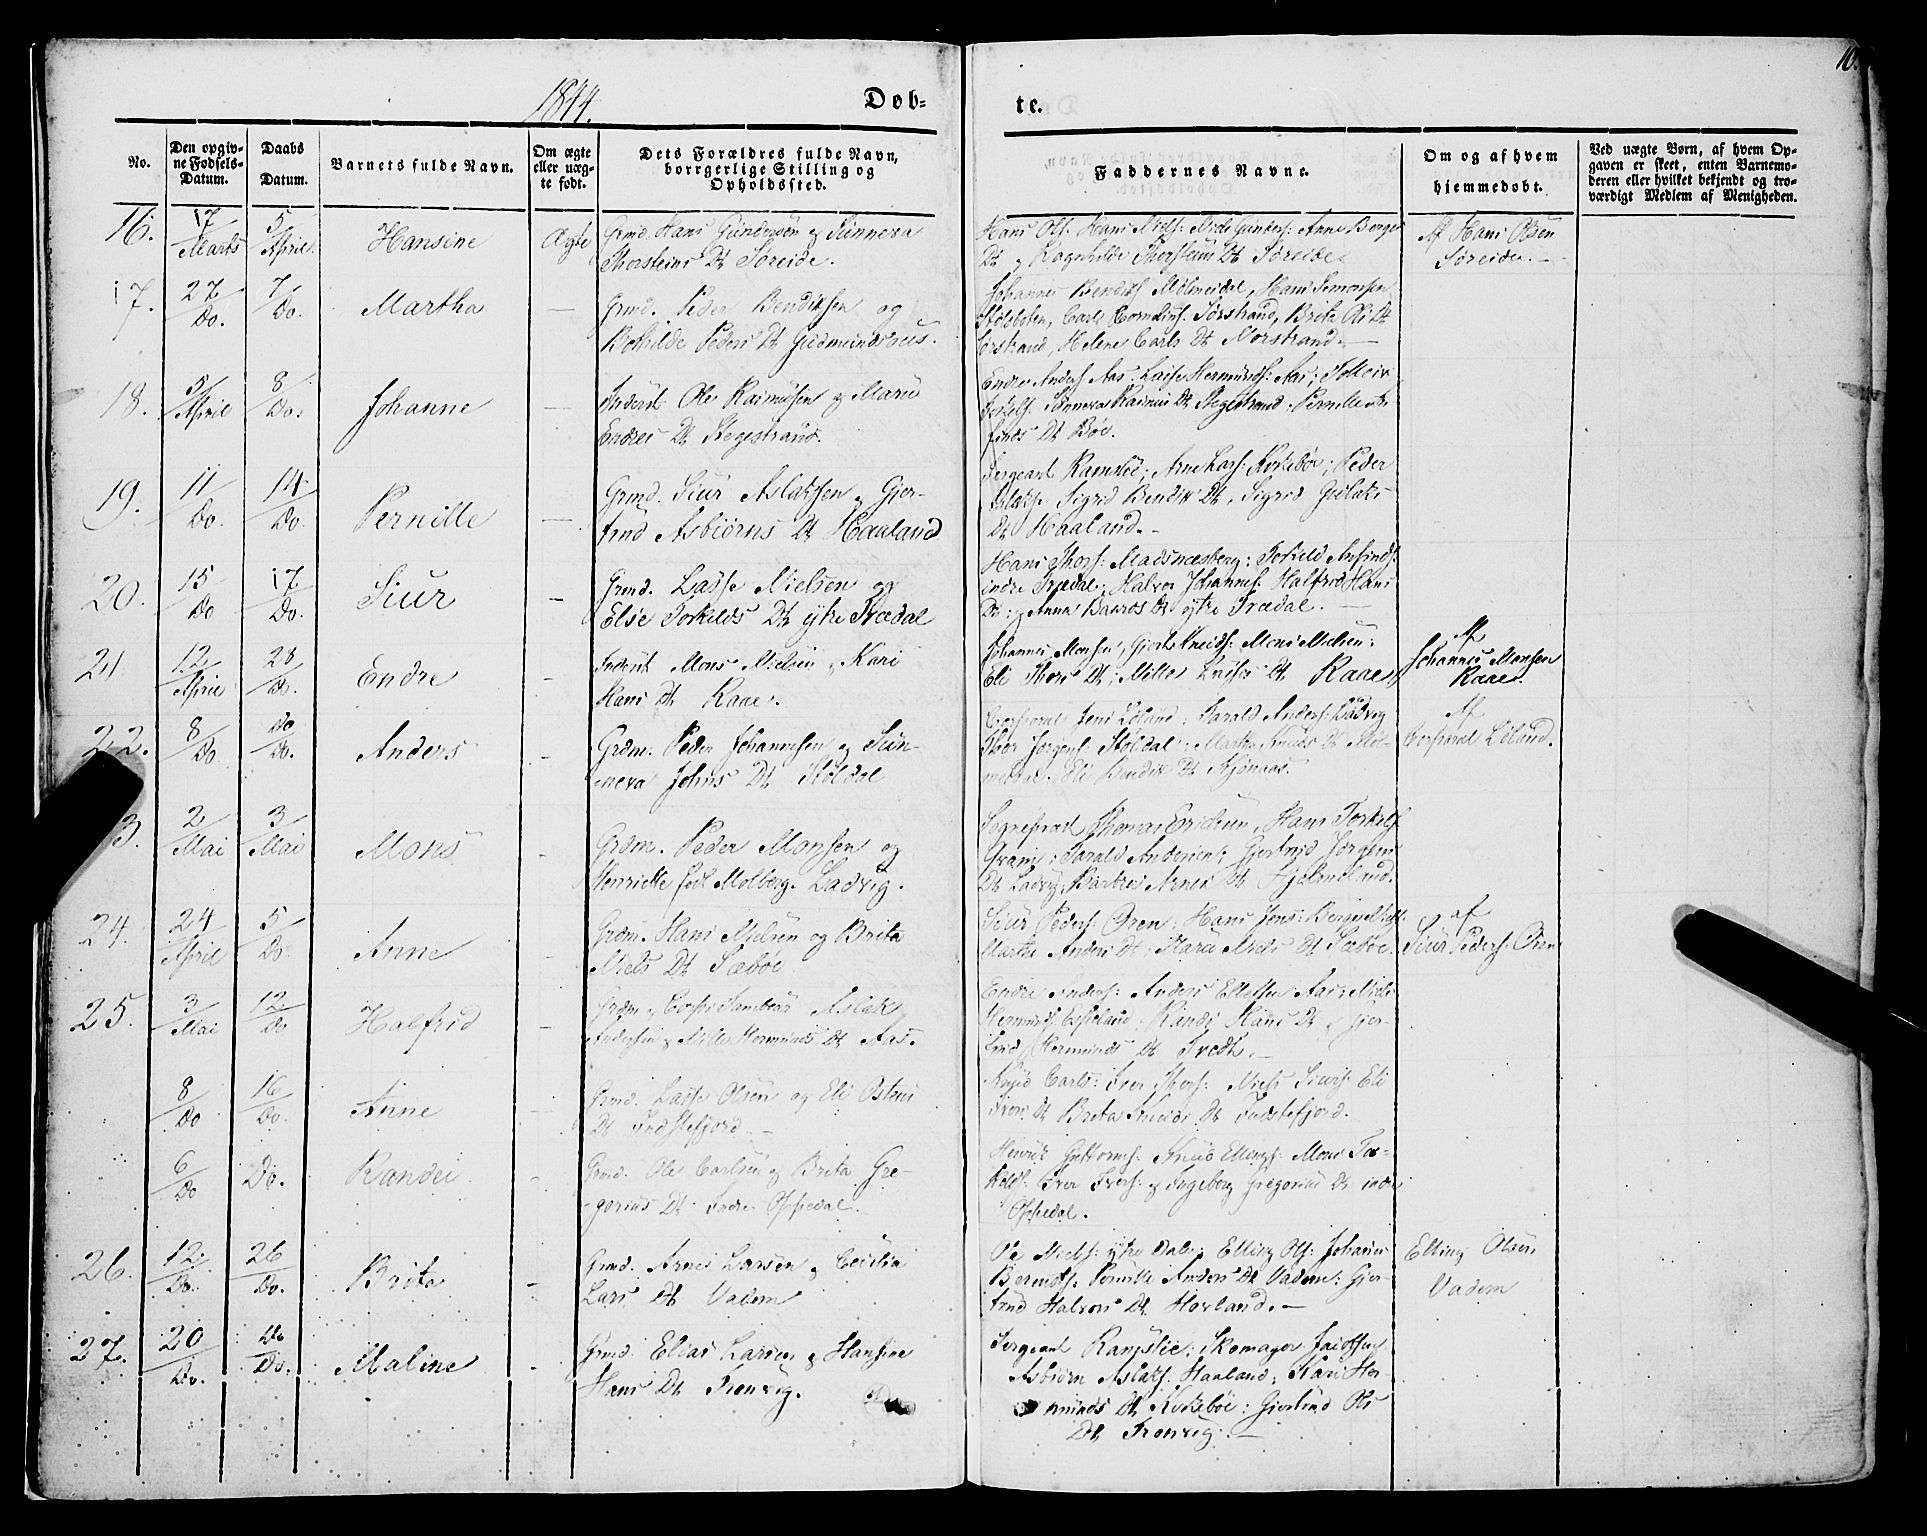 10.
1844.
Døb=
te.
No.
Den opgiv-
ne Fødsels-
Datum.
Daabs
Datum.
Barnets fulde Navn.
Om ægte
eller uæg-
te født.
Dets Forældres fulde Navn,
borrgerlige Stilling og
Opholdssted.
Faddernes Navne.
Om og af hvem
hjemmedøbt.
Ved uægte Børn, af hvem Op-
gaven er skeet, enten Barnemo-
deren eller hvilket bekjendt og tro-
værdigt Medlem af Menigheden.
16. 17/Marts 5/April Hansine Ægte
Grmd. Hans Gundersen og Sünneva
Thorsteins Dt Søreide.
Hans Ols: Hans Niels: Niels Gunders: Anne Børges
Dt og Ragnhilde Thorsteins Dt Søreide
Af Hans Olsen
Søreide.
17. 27/Do. 7/Do. Martha —
Grmd. Peder Bendiksen og
Bothilde Peders Dt Gudmunds
Johannes Bendiks Hans Simonsen
Stølsboten, Carl Cornelius: Sørstrand, Brita Ols Dt
Sørstrand, Helene Carls Dt Norstrand.
18. 5/April 8/Do. Johanne —
Inderst Ole Rasmüsen og Marie
Endres Dt Stegestrand.
Endre Anders Aas, Lasse Hermunds: Aas;
Sünneva Rasmus Dt Stegestrand: Pernille
Dt Bøe.
19. 11/Do. 14/Do. Pernille —
Grmd. Siur Aslaksen og Gjer-
trud Asbiørns Dt Haaland
Sergeant Ramslie; Arne Lars: Kirkebøe; Peder
Aslaks, Sigrid Bendix Dt, Sigrid
Dt Haaland.
20. 15/Do 17/Do. Siur —
Grmd. Lasse Nielsen og
Elsie Torkilds Dt ytre Trædal
Hans Thors: Madsnæsberg: Torkild Anfinds:
indre Trædal; Halvor Johannes: Halfrid Hans
Dt: og Anna Baards Dt ytre Trædal.
21. 12/April 28/Do. Endre —
Inderst Mons Nielsen og Kari
Hans Dt Raae.
Johannes Monsen, Mons Nielsen:
Eli Thors Dt; Mille Lasses Dt Raae
Af
Johannes Monsen
Raae.
22. 8/Do Do/Do. Anders —
Grdm. Peder Johannesen og Sün-
neva Johns Dt Støldal
Corporal Jens Løland: Harald Anders: Ladvig
Thor Jørgens: Støldal: Martha Knuds Dt
Eli Bendix Dt Kjønaas.
Af
Corporal Løland.
3. 2/Mai 3/Mai Mons —
Grdm. Peder Monsen og
Henrikke født Molberg. Ladvig.
Sognepræst Thomas Erichsen, Hans Torkels:
Harald Andersen; Gjertrud Jørgens
Dt Ladvig, Arnes Dt
24. 24/April 5/Do. Anne —
Grdm. Hans Nielsen og Brita
Niels Dt Sæbøe
Siur Peders: Øren: Hans Jens: Børge Niels:
Marthe Anders Dt: Marie Niels Dt Sæbøe.
af
Siur Peders: Øren
25. 3/Mai 12/Do Halfrid —
Grdm og Corps Tambour Aslak
Andersen og Mille Hermunds Dt Aas.
Endre Anders: Anders Ellefsen Aas: Niels
Hermunds: Randi Hans Dt og Gjer-
trud Hermunds Dt Tredt.
8/Do 16/Do. Anne —
Grmd. Lasse Olsen og Eli Ostens
Dt Indstefjord
Knud Carls: Iver Thors: Niels Siurs: Eli
Ivers Dt Brita Knuds Dt Indstefjord.
6/Do Do. Randei —
Grmd. Ole Carlsen og Brita Gre-
gorius Dt Indre Oppedal.
Henrik Guttorms: Knud Ellings: Mons Tor-
kelds: Iver Ivers: og Ingeborg Gregorius Dt indre
Oppedal.
26. 12/Do. 26/Do. Brita —
Grmd. Arne Larsen og Cecilia
Lars Dt Vadem
Ole Niels: ytre Dale; Elling Ols: Johannes
Bernts: Pernille Anders Dt Vadem: Gjer-
trud Halvors Dt Hovland.
Elling Olsen
Vadem
27. 20/Do. Do/Do. Maline —
Grmd. Elias Larsen og Hansine
Hans Dt Tronvig.
Sergeant Ramslie; Skomager
Asbiørn Aslaks: Haaland; Kari Her-
munds Dt Kirkebøe: Giertrud Ols
Dt Tronvig.